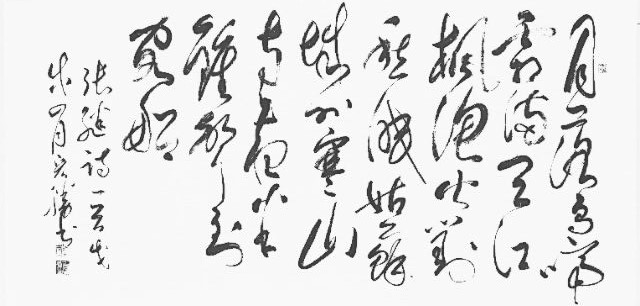 月落烏啼
霜滿天江
楓漁火對
愁眠姑蘇
城外寒山
寺夜半
鐘聲到
客船
張繼詩一首戊
月宏勝书